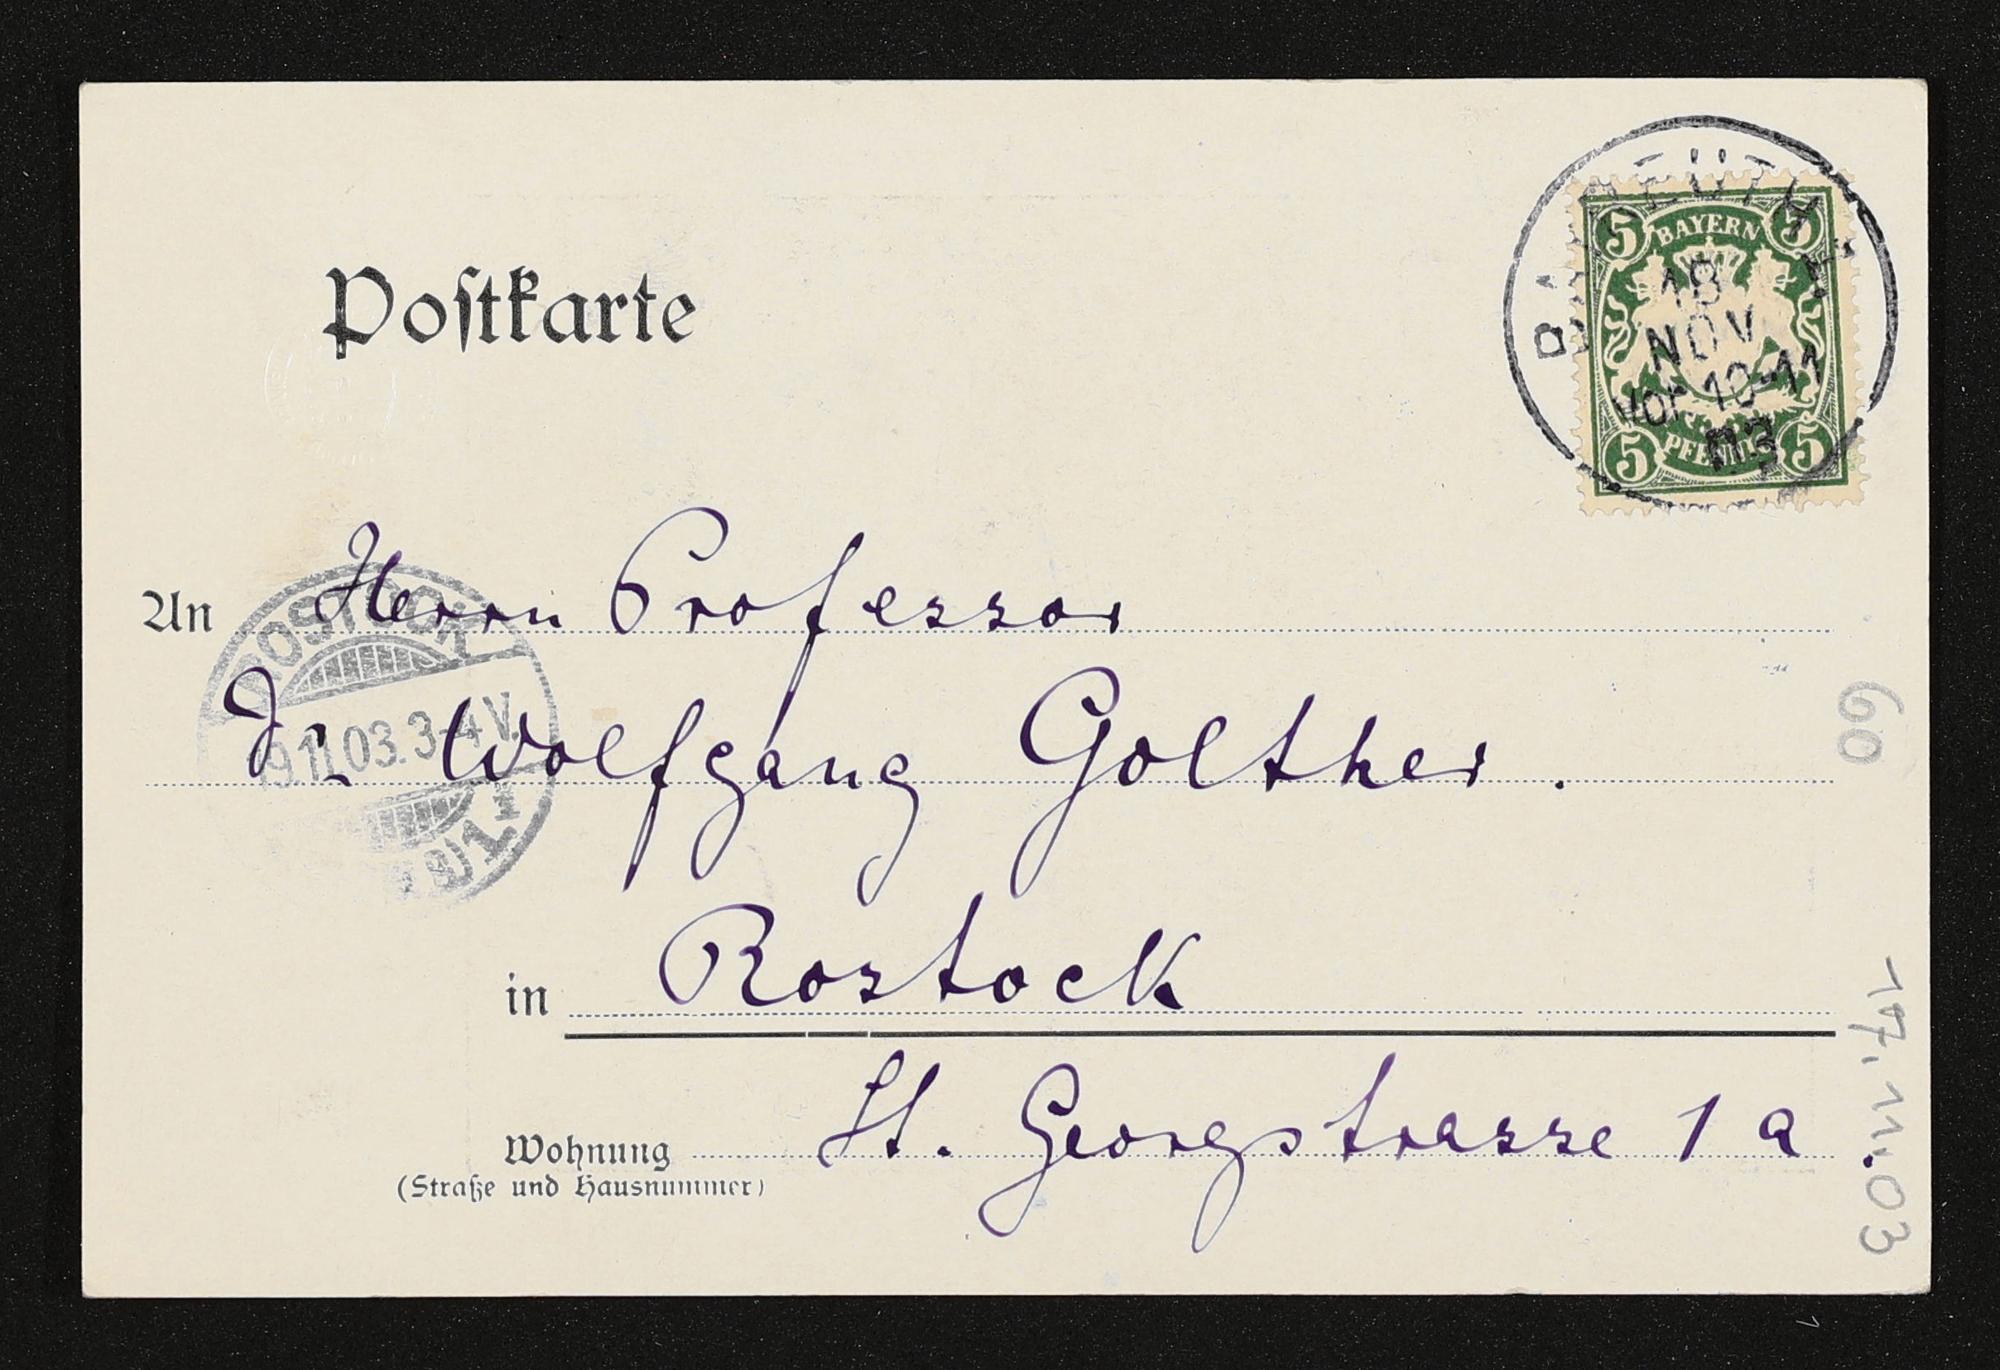 Postkarte
BAYREUTH
18
NOV
VOR 10-11
03
5 BAYERN 5
5 PFENNIG 5
An Herrn Professor
Dr Wolfgang Golther.
ROSTOCK
11.03.3-4 V.
in Rostock
Wohnung St. Georgstrasse 1 a.
(Straße und Hausnummer)
60
17.11.03